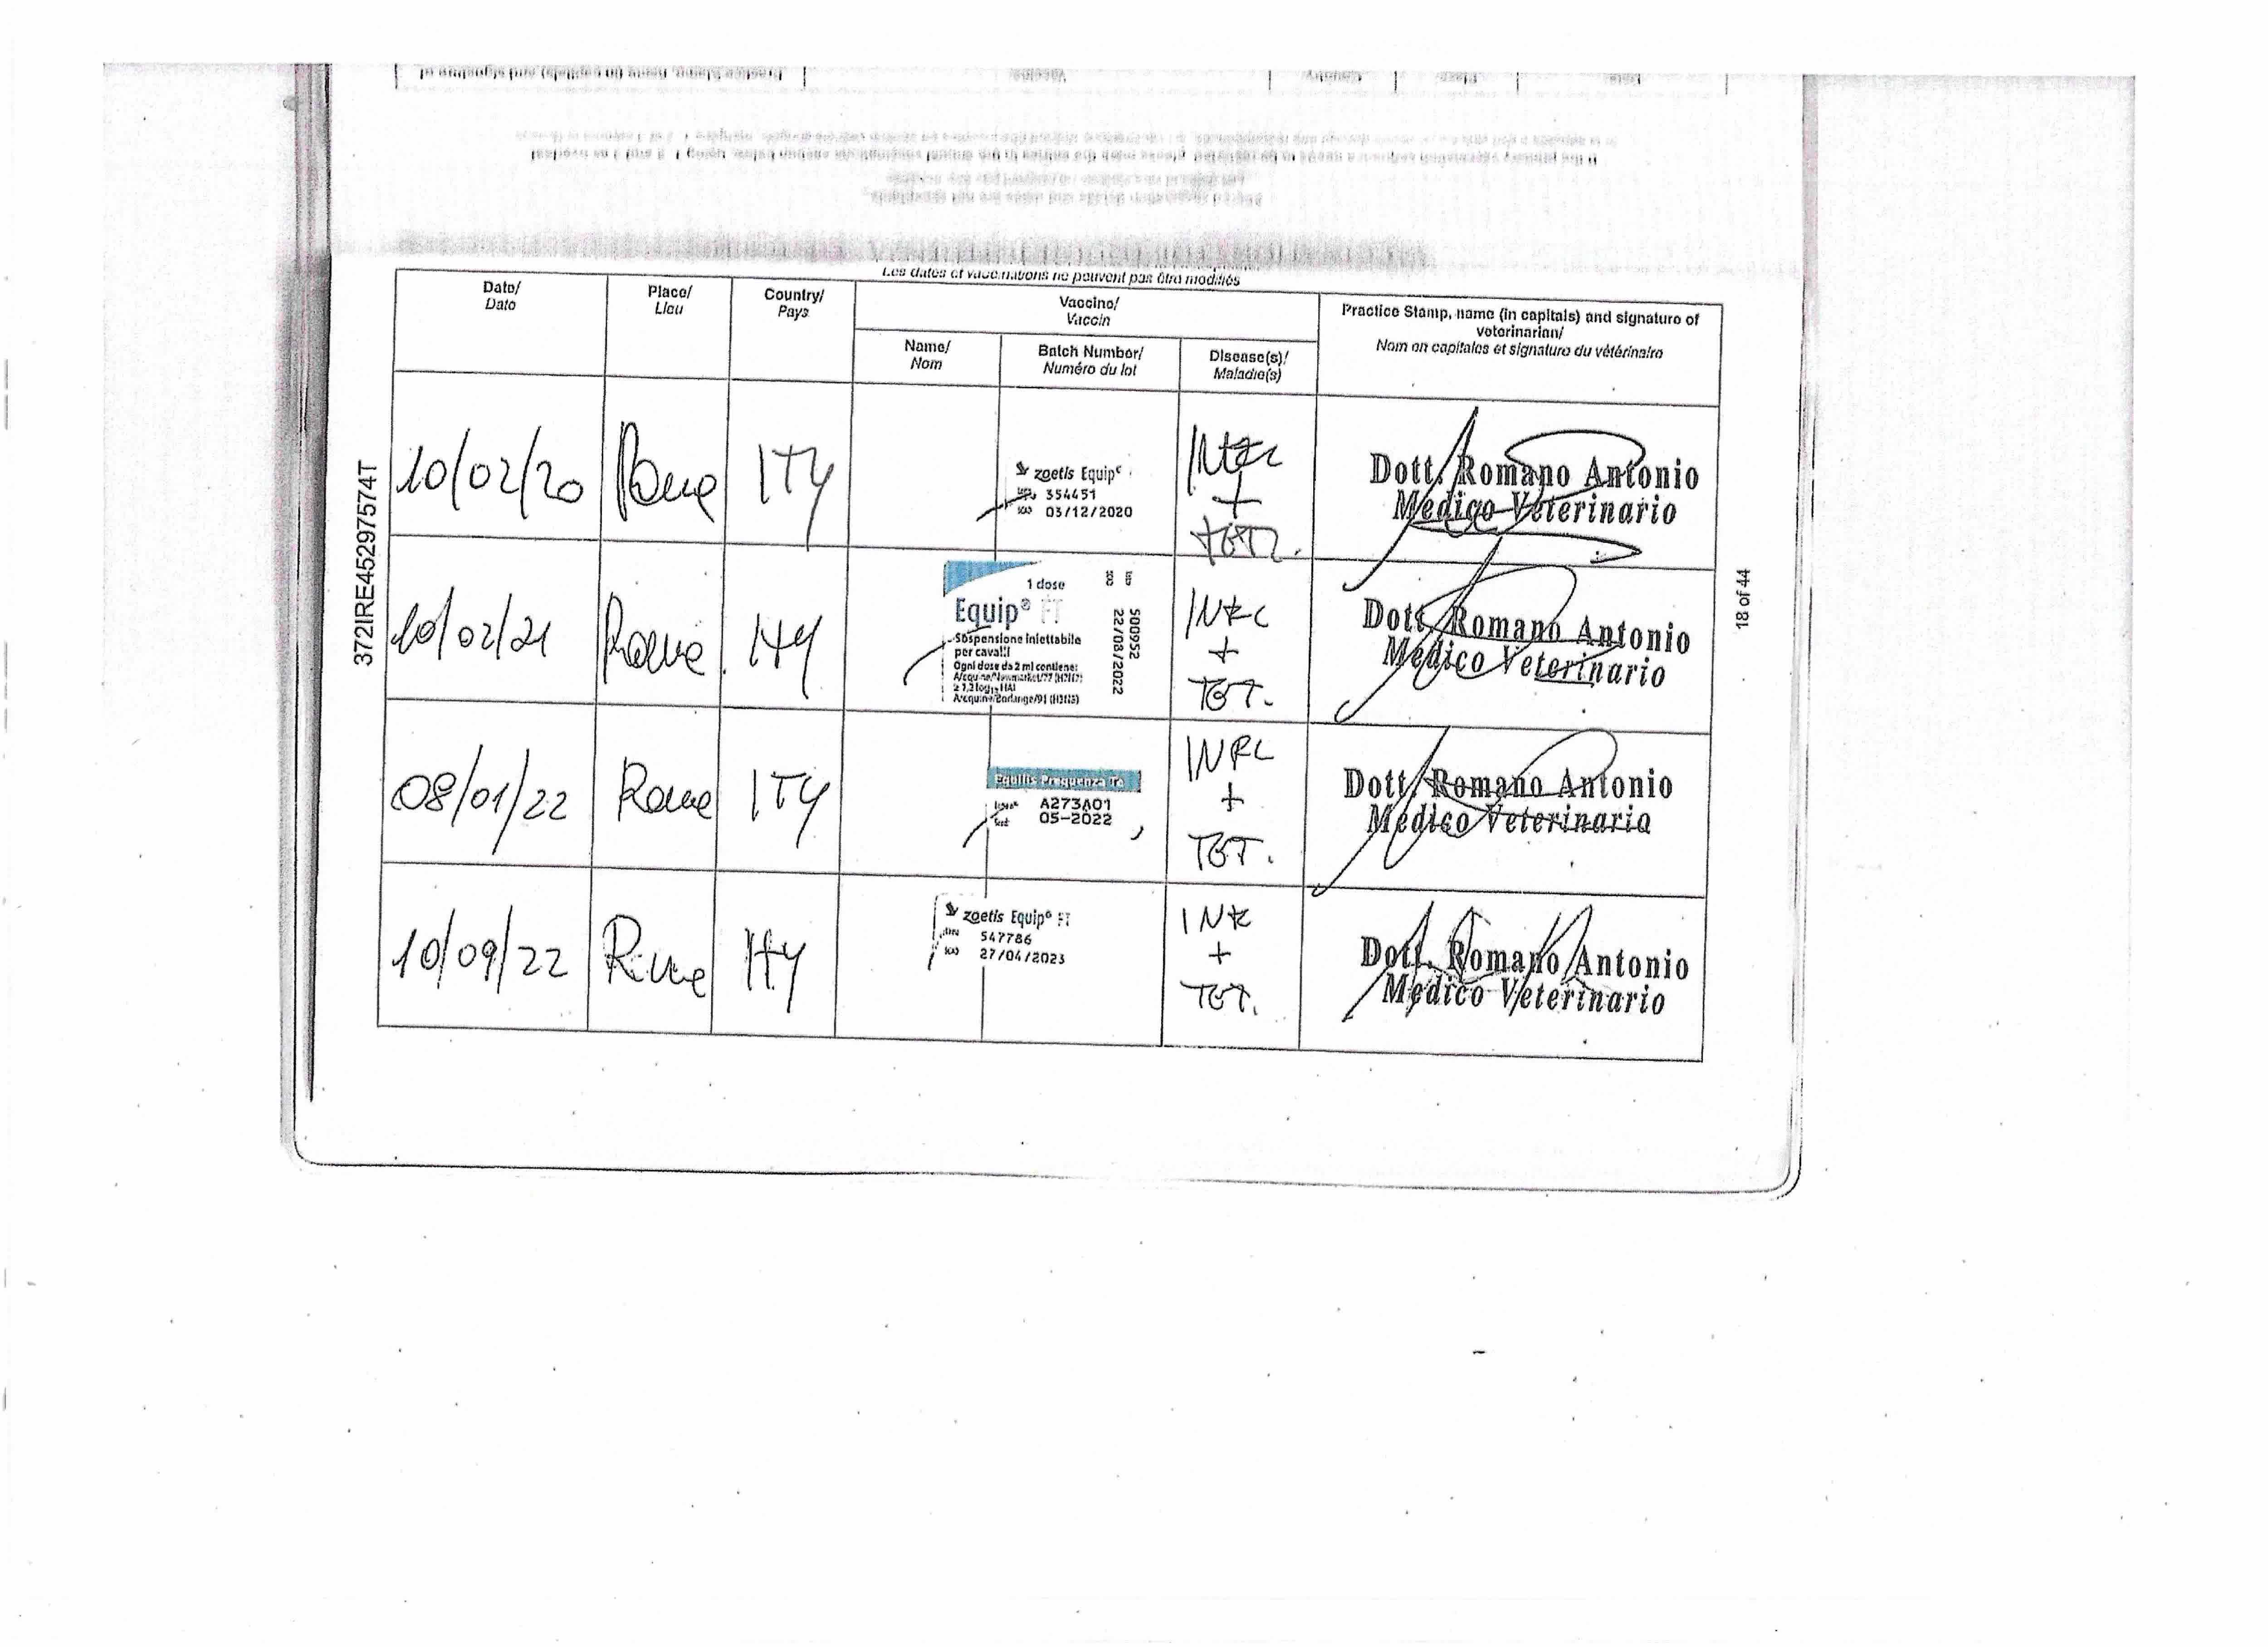 Les dates et vaccinations ne peuvent pas être modifiés
Date/
Date
Place/
Lieu
Country/
Pays
Vaccine/
Vaccin
Practice Stamp, name (in capitals) and signature of
veterinarian/
Nom en capitales et signature du vétérinaire
Name/
Nom
Batch Number/
Numéro du lot
Disease(s)/
Maladie(s)
372IRE452975574T
10/02/20
Rome
ITY
zoetis Equip
354451
03/12/2020
+
Dott. Romano Antonio
Medico Veterinario
10/02/21
Rome
ITY
1 dose
Equip® FT
Sospensione iniettabile
per cavalli
Ogni dose da 2 ml contiene:
A/equine/Newmarket/77 (H7N7)
A/equine/Borlänge/91 (H3N8)
500952
22/08/2022
+
TET.
Dott. Romano Antonio
Medico Veterinario
08/01/22
Rome
ITY
Equilis Prequenza Te
A273A01
05-2022
INFL
+
TET.
Dott. Romano Antonio
Medico Veterinario
10/09/22
Rome
ITY
zoetis Equip® FT
547786
27/04/2023
+
TET.
Dott. Romano Antonio
Medico Veterinario
18 of 44